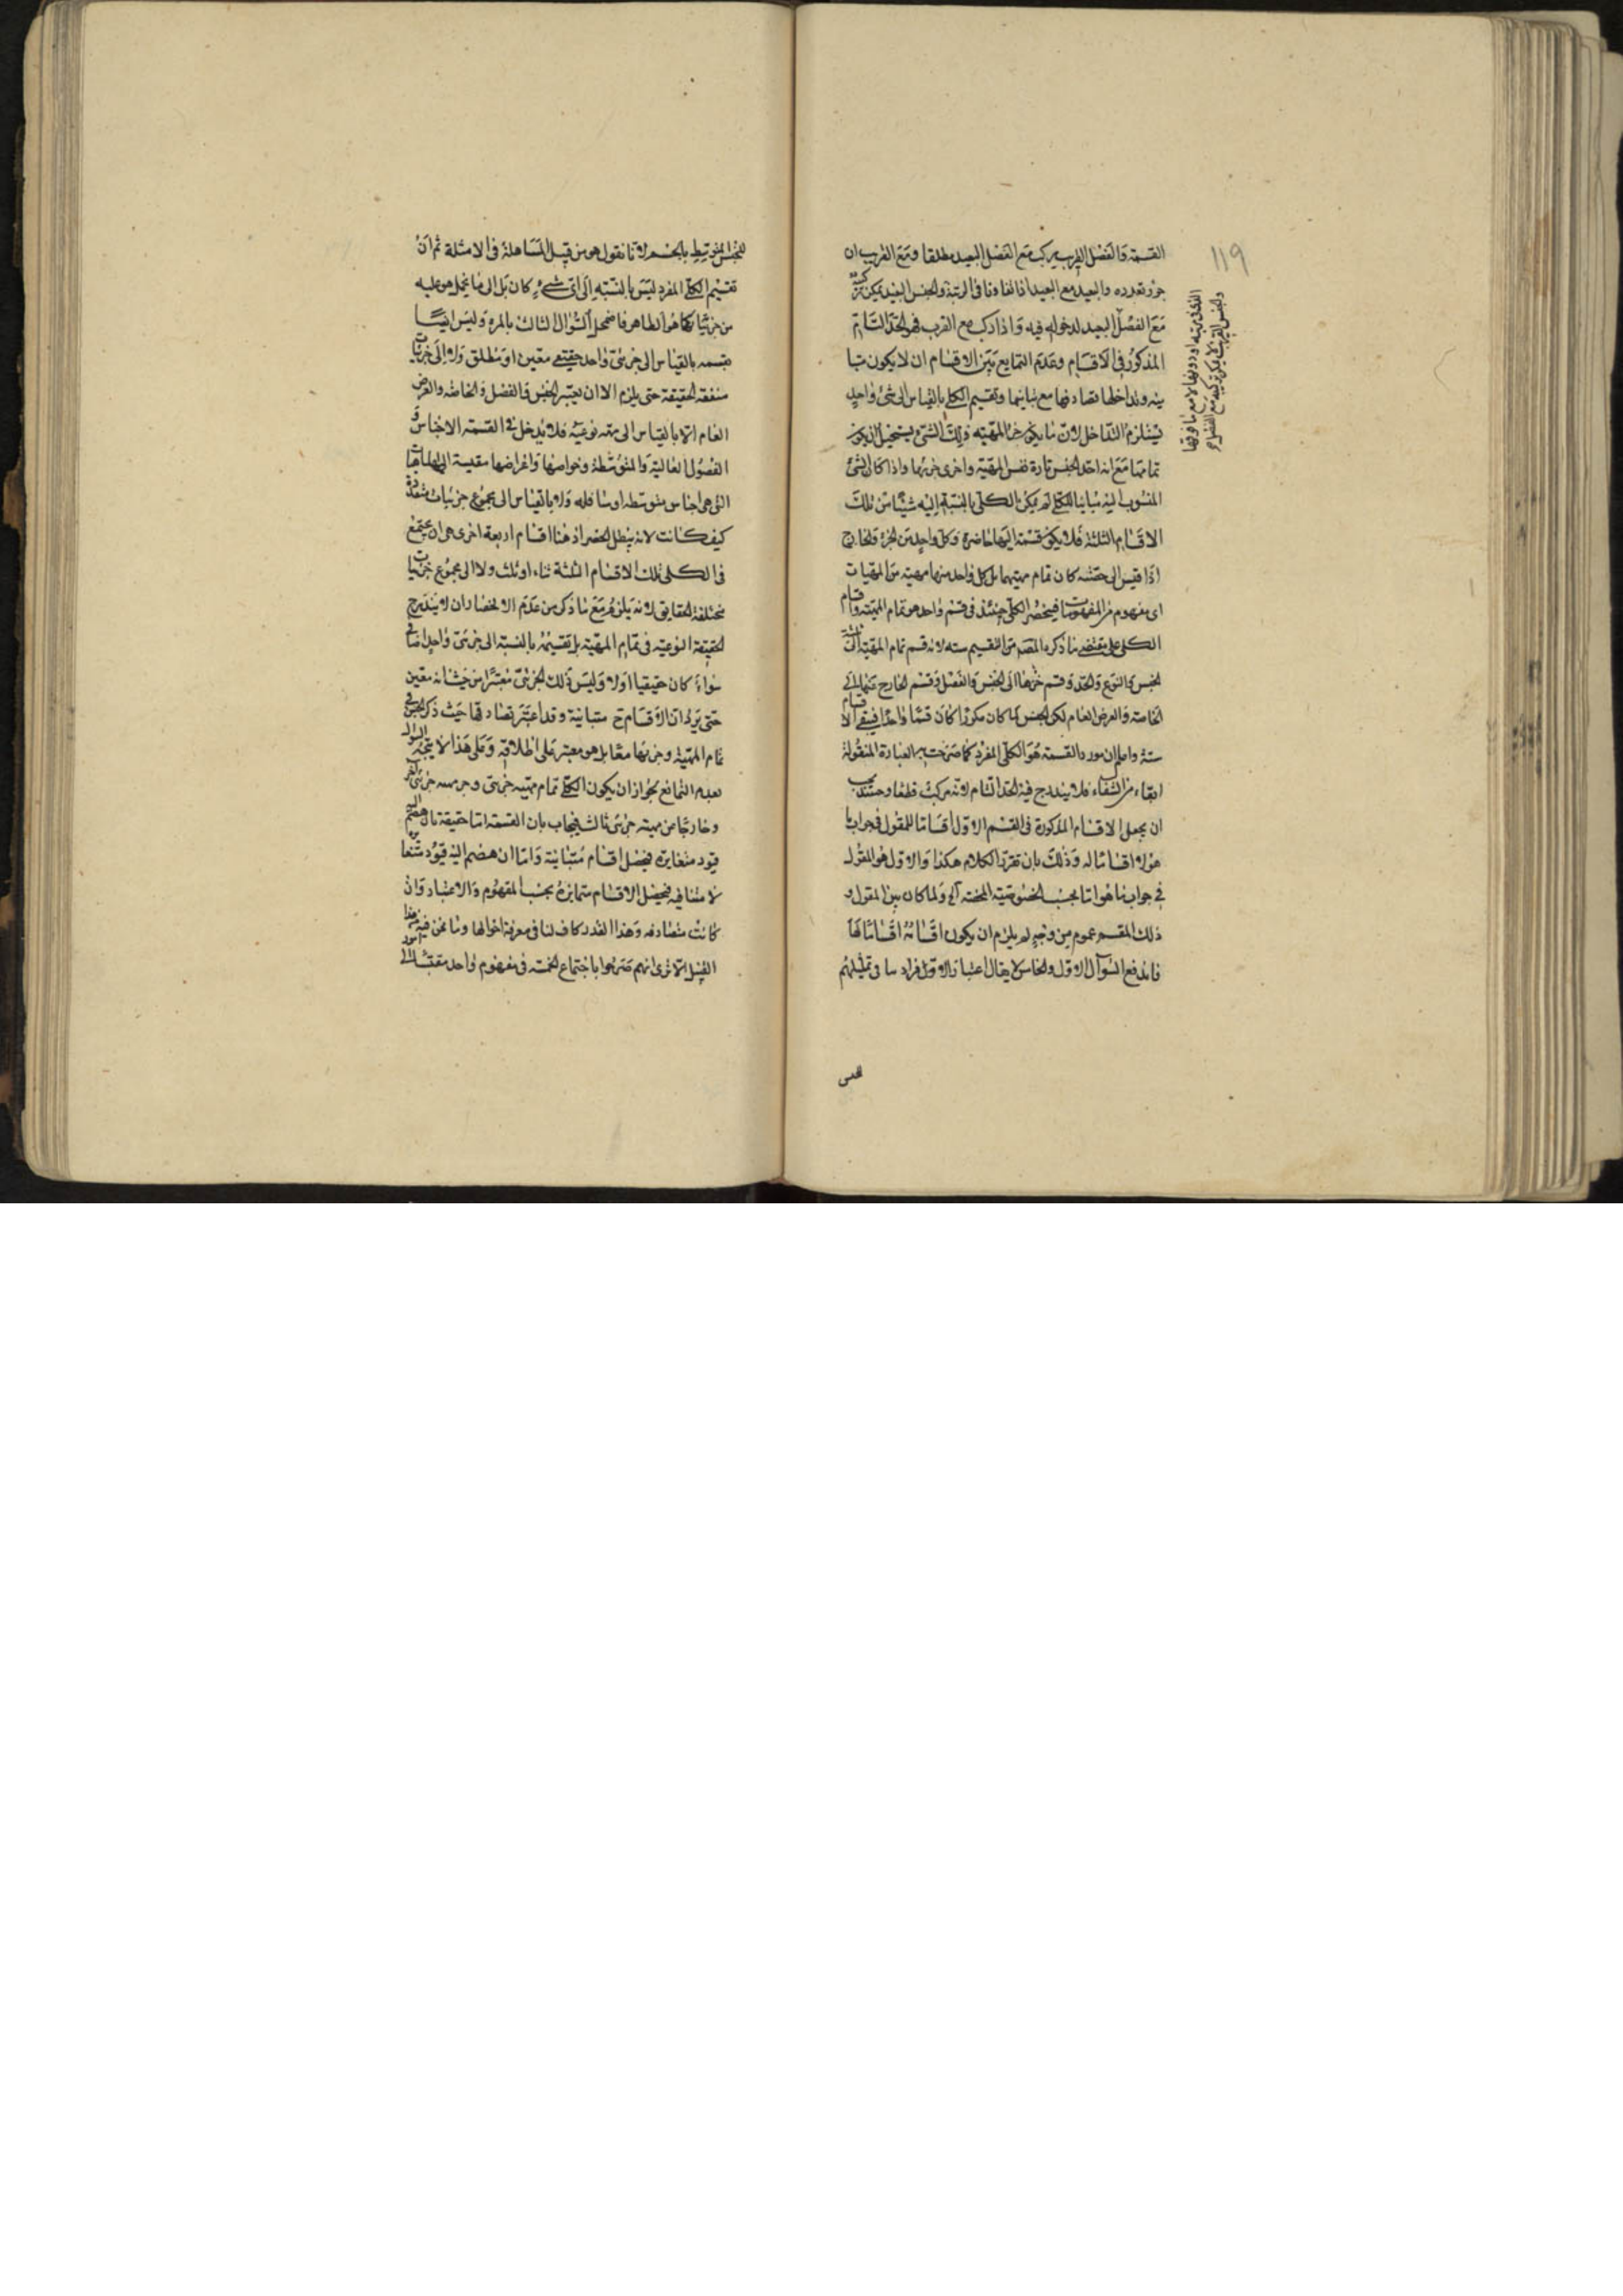 ١١٩
القسمة والفصل القريب يركب مع الفصل البعيد مطلقا ومع القريب ان
جوز تعدده والبعيد مع البعيد اذا تفاوتا فى الرتبة والجنس البعيد يمكن تركبه
مع الفصل البعيد لدخوله فيه واذا ركب مع القريب فهو الحد التام
المذكور فى الاقسام وعدم التمايع بين الاقسام ان لا يكون متبا
ينه وتداخلها تصادقها مع تباينها وتقسيم الكلى بالقياس الى شئ واحد
يستلزم التداخل لان ما يكون جزء المهية ذلك الشئ يستحيل ان يكون
تمامها مع انه اخذ الجنس تارة نفس المهية واخرى جزئها واذا كان الشئ
المنسوب اليه مباينا للكلى لم يكن الكلى بالنسبة اليه شيئا من تلك
الاقسام الثلثة فلا يكون قسمة اليها حاصرة وكل واحد من الجزء والخارج
اذا قيس الى حصته كان تمام مهيتهما بل كل واحد منها مهية من المهيات
اى مفهوم من المفهومات فينحصر الكلى حينئذ فى قسم واحد هو تمام المهية واقسام
الكلى على مقتضى ما ذكره المصـ من التقسيم ستة لانه قسم تمام المهية الى ثلثة
الجنس والنوع والحد وقسم جزءها الى الجنس والفصل وقسم الخارج عنها الى
الخاصة والعرض العام لكن الجنس لما كان مكررا كان قسما واحدا فبقى الاقسام
ستة واعلم ان مورد القسمة هو الكلى المفرد كما صرحت به العبارة المنقولة
انفاء من الشفاء فلا يندرج فيه الحد التام لانه مركب قطعا وحينئذ يجب
ان يجعل الاقسام المذكورة فى القسم الاول اقساما للمقول فى جواب ما
هو لا اقساما له وذلك بان تقرر الكلام هكذا والاول هو المقول
فى جواب ما هو اما بحسب الخصوصية المحضة آه ولما كان بين المقول و
ذلك المقسم عموم من وجه لم يلزم ان يكون اقسامه اقساما لها
فاندفع السؤال الاول والخامس لا يقال اعتبار الاول افراد ينافى تمثيلهم
للجنس
للجنس المتوسط بالجسم لانا نقول هو من قبيل المساهلة فى الامثلة ثم ان
تقسيم الكلى المفرد ليس بالنسبه الى اى شئ كان بل الى ما يحمل هو عليه
من جزئياته كما هو الظاهر فاضمحل السؤال الثالث بالمرة وليس ايضا
تقسمه بالقياس الى جزئى واحد حقيقى معين او مطلق ولا الى جزئيات
متفقة الحقيقة حتى يلزم الا ان يعتبر الجنس والفصل والخاصة والعرض
العام الا بالقياس الى مهية نوعية فلا يدخل فى القسمة الاجناس و
الفصول العالية والمتوسطة وخواصها واعراضها مقيسة الى الماهيات
التى هى اجناس متوسطه او سافله ولا بالقياس الى مجموع جزئيات متعددة
كيف كانت لانه يبطل الحصر اذ هنا اقسام اربعة اخرى هى ان يجتمع
فى الكلى تلك الاقسام الثلثة ثناء او ثلث ولا الى مجموع جزئيات
مختلفة الحقايق لانه يلزم مع ما ذكر من عدم الانحصار ان لا يندرج
الحقيقة النوعية فى تمام المهية بل تقسيمه بالنسبة الى جزئى واحد
سواء كان حقيقيا اولا وليس ذلك الجزئى معتبرا من حيث انه معين
حتى يرد ان الاقسام ح متباينة وقد اعتبر تصادقها حيث ذكر الجنس فى
تمام المهية وجزئها معا بل هو معتبر على اطلاقه وعلى هذا لا يتجه السؤال
بعدم التمانع لجواز ان يكون الكلى تمام مهية جزئى وجزء مهية جزئى آخر
وخارجا من مهية جزئى ثالث فيجاب بان القسمة اما حقيقة بان
قيود متغايرة فيحصل اقسام متباينة واما ان ينضم اليه قيود متغايرة
لا متنافيه فيحصل الاقسام متمايزة بحسب المفهوم والاعتبار وان
كانت متصادقه وهذا القدر كاف لنا فى معرفة احوالها وما نحن فيه من هذا
القبيل الا ترى انهم صرحوا باجتماع الخمسة فى مفهوم واحد مقيسا الى امور